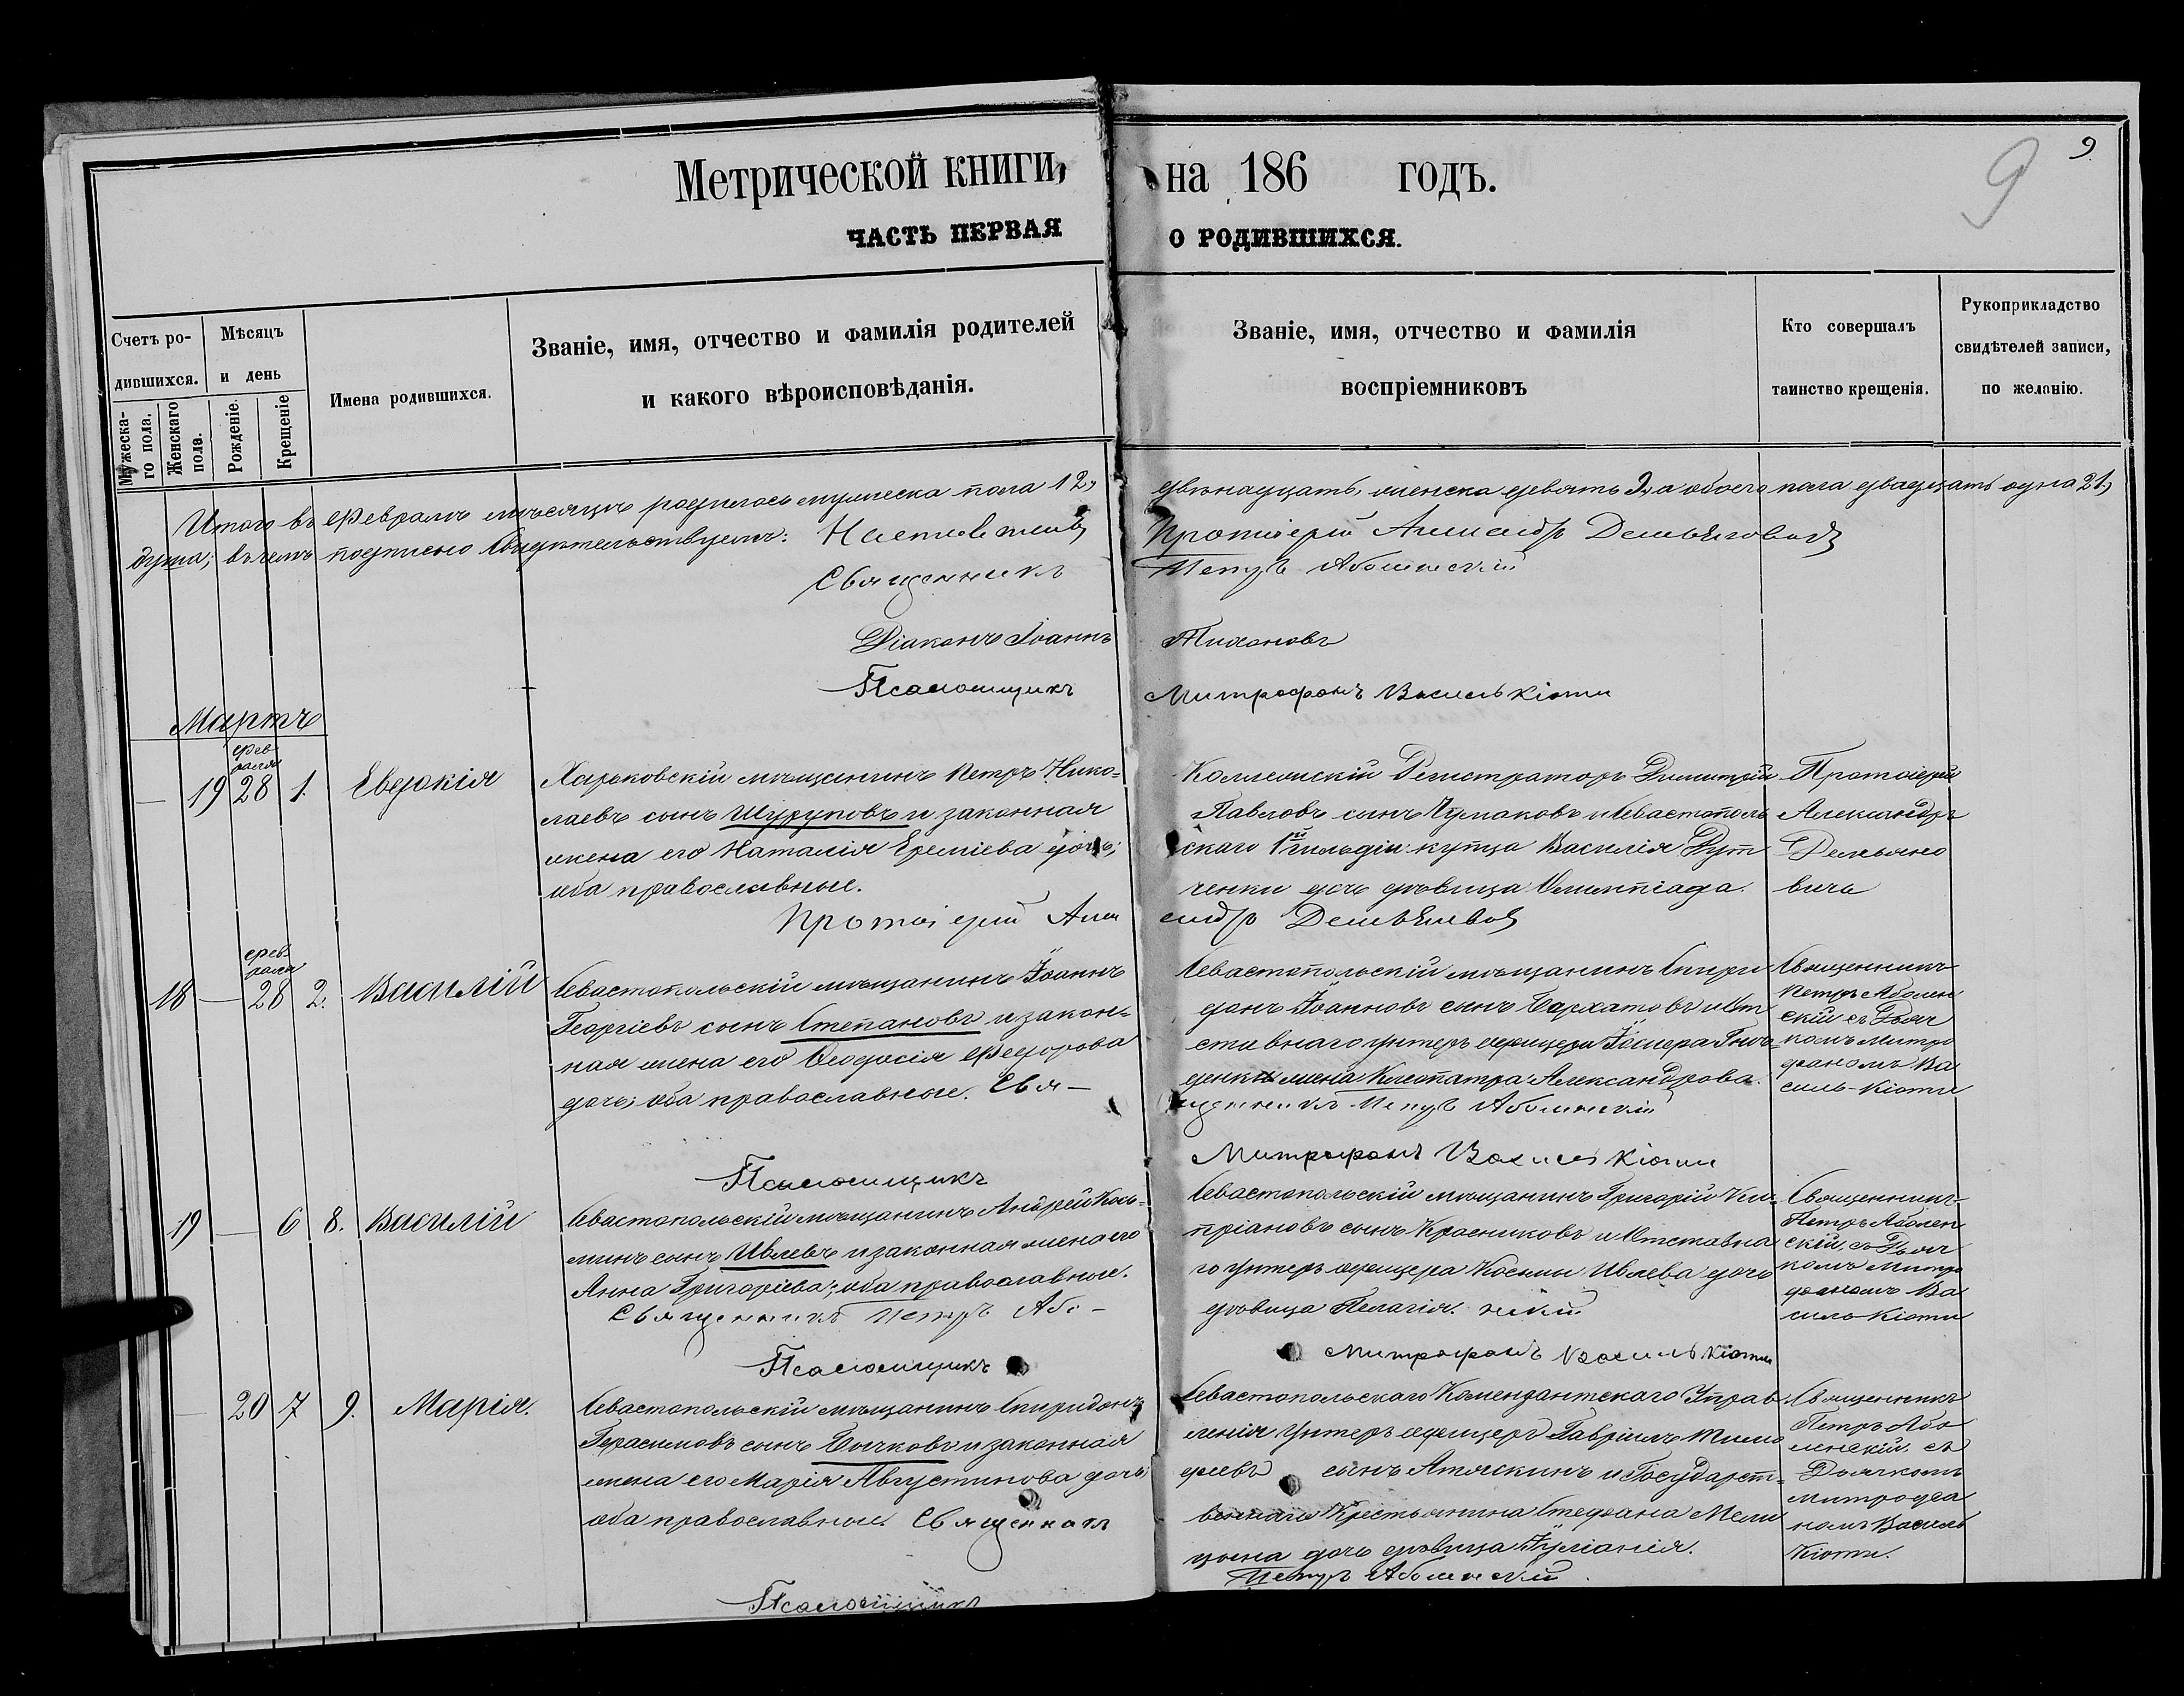 Метрической книги, на 186 годъ.
9
9.
ЧАСТЬ ПЕРВАЯ О РОДИВШИХСЯ.
Счетъ родившихся.
Мужескаго пола.
Женскаго пола.
Мѣсяцъ и день
Рожденіе.
Крещеніе
Имена родившихся.
Званіе, имя, отчество и фамилія родителей
и какого вѣроисповѣданія.
Званіе, имя, отчество и фамилія
воспріемниковъ
Кто совершалъ
таинство крещенія.
Рукоприкладство
свидѣтелей записи,
по желанію.
Итого въ Февралѣ мѣсяцѣ родилось мужеска пола 12, двѣнадцать, женска девять 9, а обоего пола двадцать одна 21,
душа; въ чемъ подписью свидѣтельствуемъ: Настоятель Протоіерей Александръ Демьяновичъ
Священникъ Петръ Аболенскій
Діаконъ Іоаннъ Тихоновъ
Псаломщикъ Митрофанъ Василькіоти
Мартъ
— 19 февраля 28 1. Евдокія
Харьковскій мѣщанинъ Петръ Нико=
лаевъ сынъ Шуруповъ и законная
жена его Наталія Ереміева дочь;
оба православные.
Коллежскій Регистраторъ Димитрій
Павловъ сынъ Чумаковъ и Севастополь
скаго 1й гильдіи купца Василія
ченки дочь дѣвица Олимпіада.
Протоіерей
Александръ
Демьяно
вичь
Протоіерей Александръ Демьяновичъ
18 — февраля 28 2. Василій
Севастопольскій мѣщанинъ Іоаннъ
Георгіевъ сынъ Степановъ и закон=
ная жена его Ѳеодосія Федорова
дочь; оба православные. Свя—
Севастопольскій мѣщанинъ Спири
донъ Іоанновъ сынъ Бархатовъ и От
ставнаго унтеръ офицера
жена Клеопатра Александрова.
щенникъ Петръ Аболенскій
Священникъ
Петръ Аболен
скій съ Дьяч
комъ Митро
фаномъ Ва
силь-Кіоти
Псаломщикъ Митрофанъ Василькіоти
19 — 6 8. Василій
Севастопольскій мѣщанинъ Андрей Кось=
минъ сынъ Ивлевъ и законная жена его
Анна Григоріева; оба православные.
Священникъ Петръ Або—
Севастопольскій мѣщанинъ Григорій Ки=
пріановъ сынъ Красниковъ и Отставна
го унтеръ офицера Косьмы Ивлева дочь
дѣвица Пелагія.
Священникъ
Петръ Аболен
скій, съ Дьяч
комъ Митро
фаномъ Ва
силь-Кіоти
Псаломщикъ Митрофанъ Василькіоти
— 20 7 9. Марія.
Севастопольскій мѣщанинъ Спиридонъ
Герасимовъ сынъ Бычковъ и законная
жена его Марія Августинова дочь;
оба православные. Священникъ
Севастопольскаго Комендантскаго Управ
ленія унтеръ офицеръ Гавріилъ Тимо
феевъ сынъ Атяскинъ и Государст=
веннаго Крестьянина Стефана
дочь дѣвица Іуліанія.
Петръ Аболенскій.
Священникъ
Петръ Або
ленскій съ
Дьячкомъ
Митрофа
номъ Василь
Кіоти.
Псаломщикъ